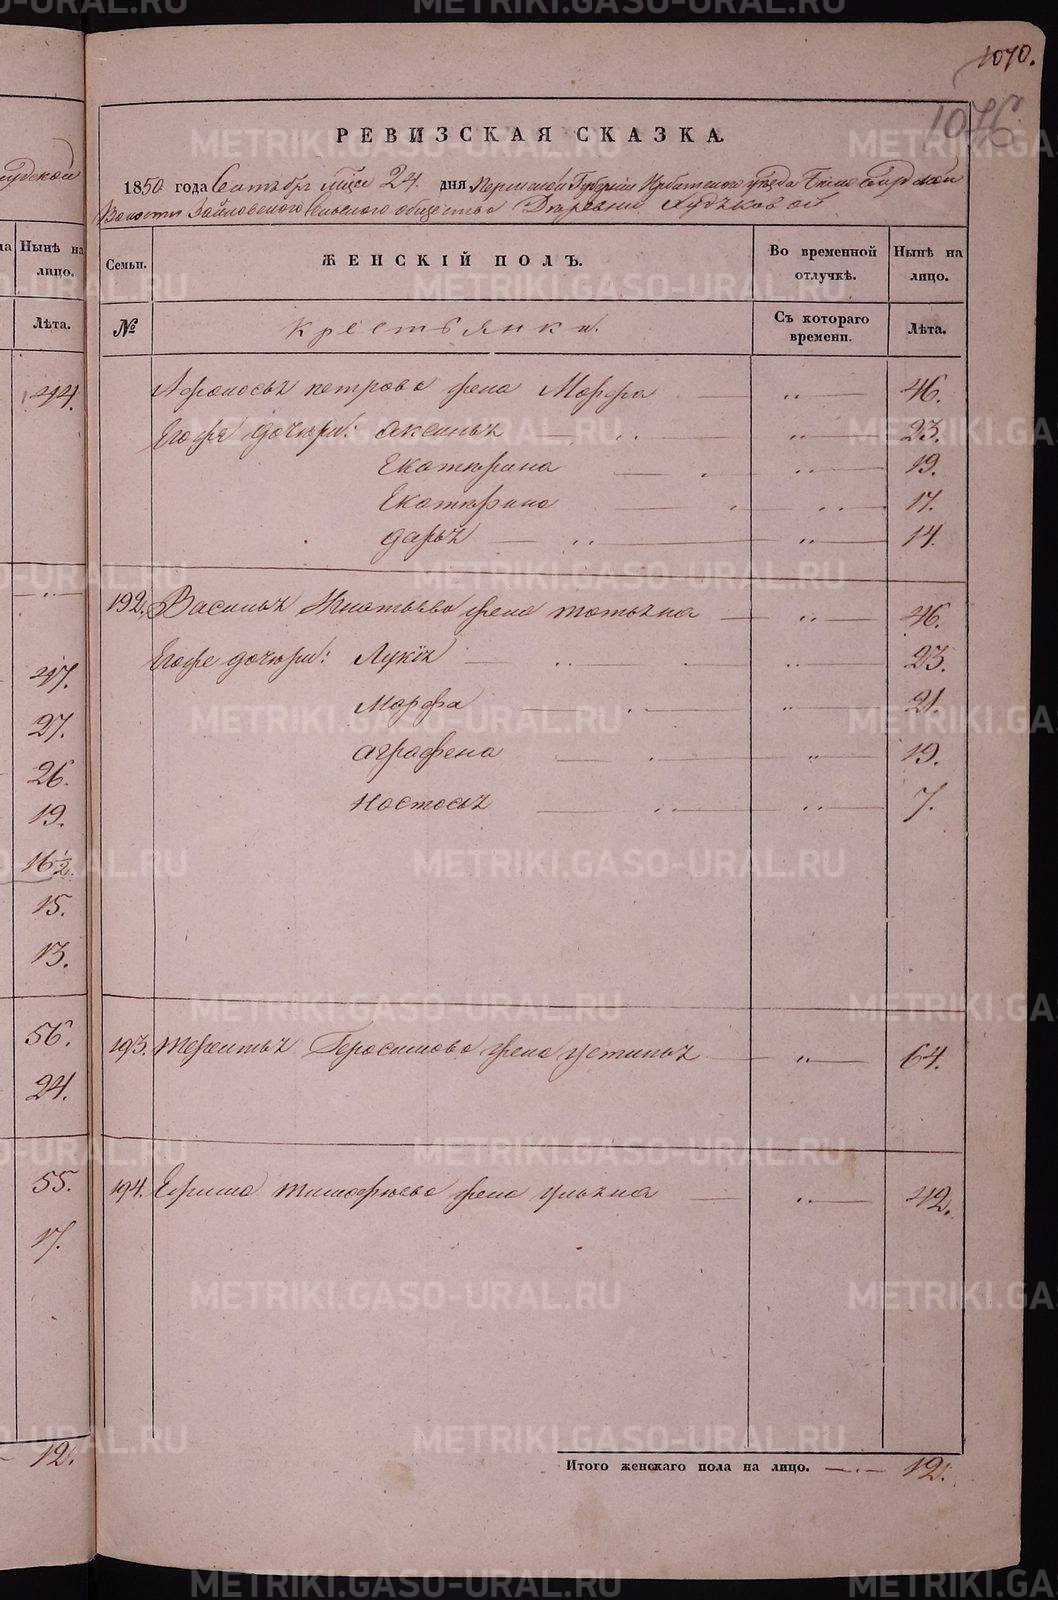 1070.
1076.
РЕВИЗСКАЯ СКАЗКА.
1850 года Сентября мца 24. дня Пермской Губернии Ирбитскаго уезда Белослудской
Волости Зайковскаго Сельскаго общества Деревни
Семьи. ЖЕНСКІЙ ПОЛЪ. Во временной отлучкѣ. Нынѣ на лицо.
№ Крестьянки. Съ котораго времени. Лѣта.
Афонасья петрова жена Марфа 46.
Егоже дочери: аксинья 23.
Екатерина 19.
Екатерина 17.
дарья 14.
192. Василья Игнатьева жена татьяна 46.
Егоже дочери: Лукія 23.
Марфа 21.
аграфена 19.
Настасья 7.
193. терентья Герасимова жена устинья 64.
194. Ефима тимофеева жена ульяна 42.
Итого женскаго пола на лицо. 12.
Нынѣ на лицо.
Лѣта.
44.
47.
27.
26.
19.
16½.
15.
13.
56.
24.
55.
17.
12.
METRIKI.GASO-URAL.RU